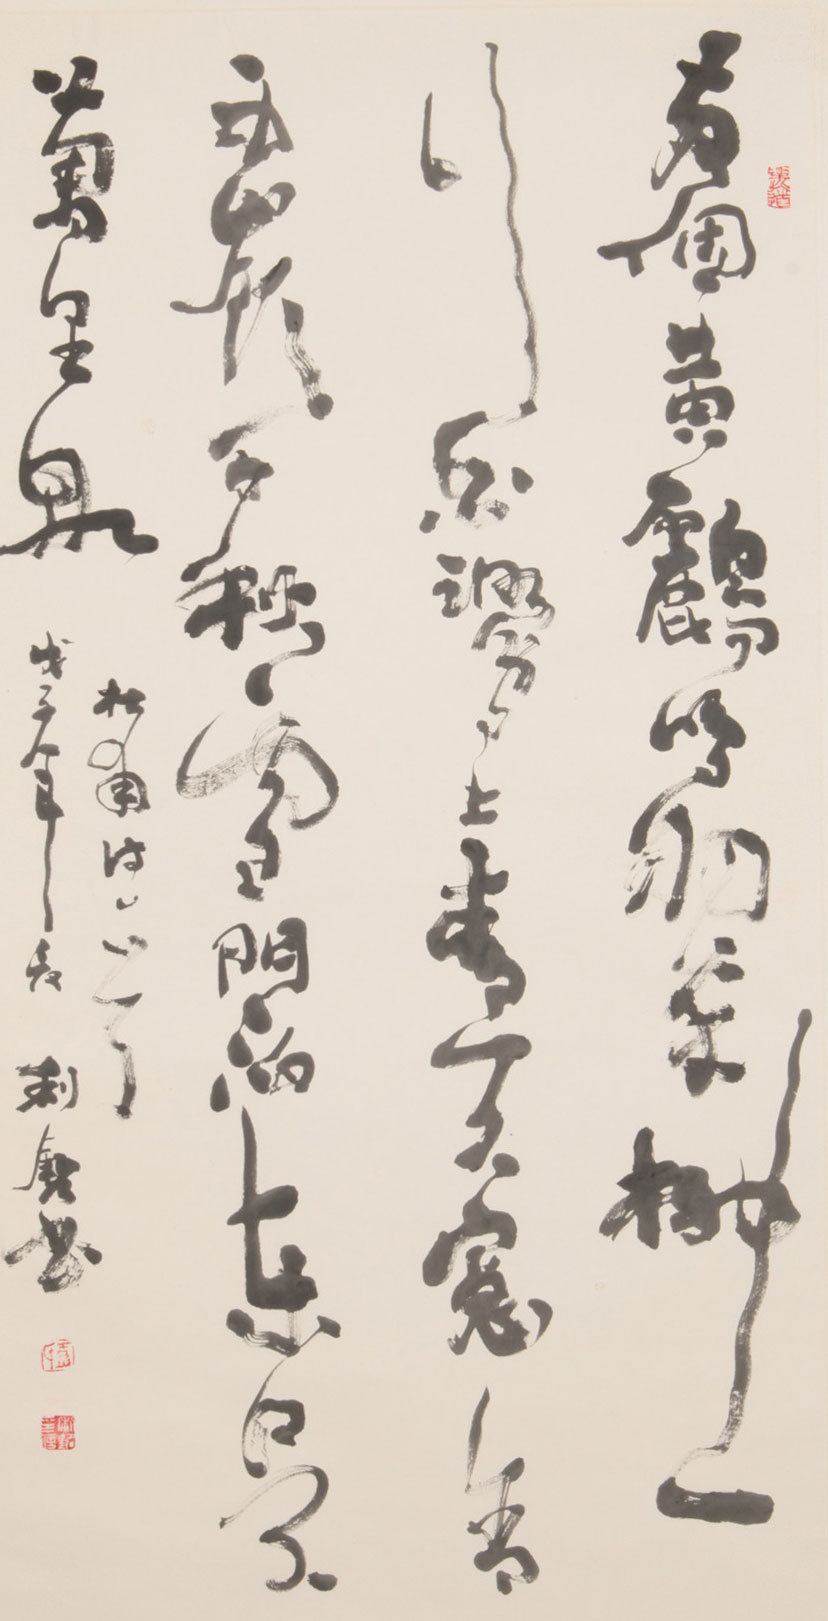 兩個黃鸝鳴翠柳一
行白鷺上青天窗含
西嶺千秋雪門泊東吳
萬里船
杜甫詩
戊子年秋